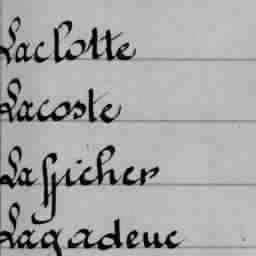 Laclotte
Lacoste
Lafficher
Lagadeuc